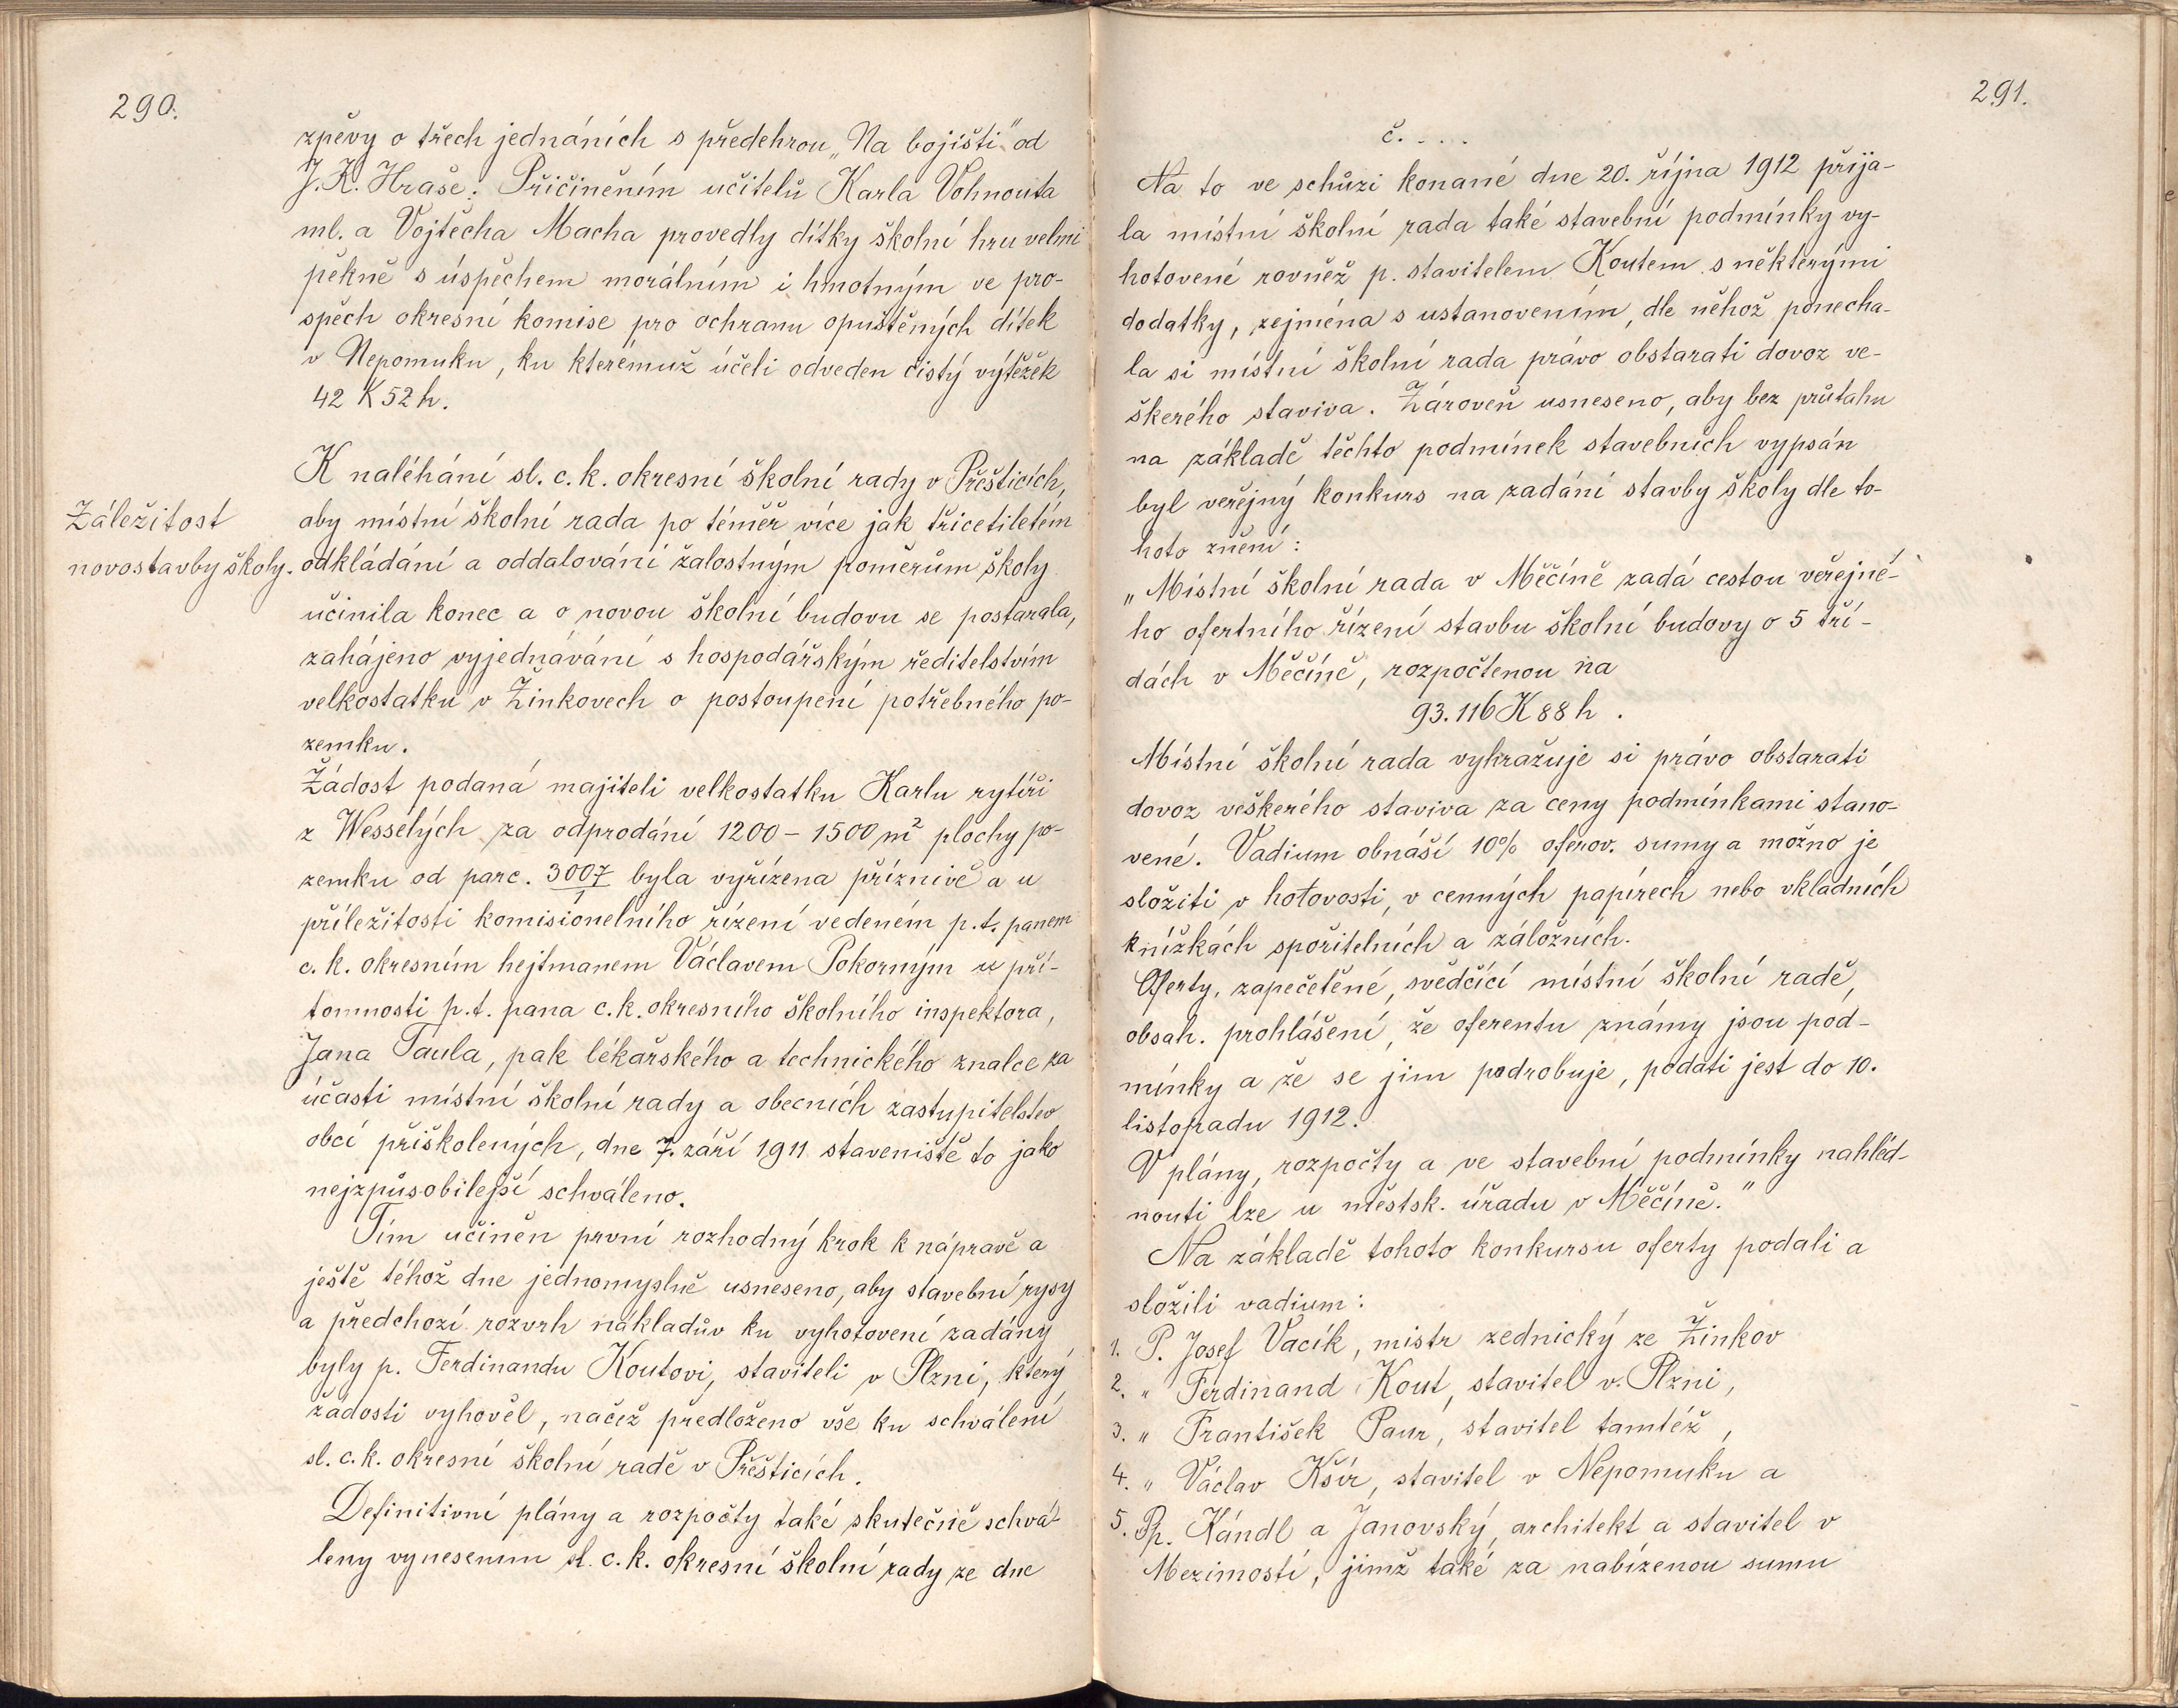 290.
zpěvy o třech jednáních s předehrou „Na bojišti" od
J. K. Hraše. Přičiněním učitelů Karla Vohnouta
ml. a Vojtěcha Macha provedly dítky školní hru velmi
pěkně s úspěchem morálním i hmotným ve pro-
spěch okresní komise pro ochranu opuštěných dítek
v Nepomuku, ku kterémuž účeli odveden čistý výtěžek
42 K 52 h.
K naléhání sl. c. k. okresní školní rady v Přešticích,
Záležitost
novostavby školy.
aby místní školní rada po téměř více jak třicetiletém
odkládání a oddalování žalostným poměrům školy
učinila konec a o novou školní budovu se postarala,
zahájeno vyjednávání s hospodářským ředitelstvím
velkostatku v Žinkovech o postoupení potřebného po-
zemku.
Žádost podaná majiteli velkostatku Karlu rytíři
z Wesselých za odprodání 1200 – 1500 m² plochy po-
zemku od parc. 3007/1 byla vyřízena příznivě a u
příležitosti komisionelního řízení vedeném p. t. panem
c. k. okresním hejtmanem Václavem Pokorným u pří-
tomnosti p. t. pana c. k. okresního školního inspektora,
Jana Taula, pak lékařského a technického znalce za
účasti místní školní rady a obecních zastupitelstev
obcí přiškolených, dne 7. září 1911 staveniště to jako
nejzpůsobilejší schváleno.
Tím učiněn první rozhodný krok k nápravě a
ještě téhož dne jednomyslně usneseno, aby stavební rysy
a předchozí rozvrh nákladův ku vyhotovení zadány
byly p. Ferdinandu Koutovi, staviteli v Plzni, který
žádosti vyhověl, načež předloženo vše ku schválení
sl. c. k. okresní školní radě v Přešticích.
Definitivní plány a rozpočty také skutečně schvá-
leny vynesením sl. c. k. okresní školní rady ze dne
291.
č. . . . .
Na to ve schůzi konané dne 20. října 1912 přija-
la místní školní rada také stavební podmínky vy-
hotovené rovněž p. stavitelem Koutem s některými
dodatky, zejména s ustanovením, dle něhož ponecha-
la si místní školní rada právo obstarati dovoz ve-
škerého staviva. Zároveň usneseno, aby bez průtahu
na základě těchto podmínek stavebních vypsán
byl veřejný konkurs na zadání stavby školy dle to-
hoto znění:
„Místní školní rada v Měčíně zadá cestou veřejné-
ho ofertního řízení stavbu školní budovy o 5 tří-
dách v Měčíně, rozpočtenou na
93.116 K 88 h.
Místní školní rada vyhražuje si právo obstarati
dovoz veškerého staviva za ceny podmínkami stano-
vené. Vadium obnáší 10% oferov. sumy a možno je
složiti v hotovosti, v cenných papírech nebo vkladních
knížkách spořitelních a záložních.
Oferty, zapečetěné, svědčící místní školní radě,
obsah. prohlášení, že oferentu známy jsou pod-
mínky a že se jim podrobuje, podati jest do 10.
listopadu 1912.
V plány, rozpočty a ve stavební podmínky nahléd-
nouti lze u městsk. úřadu v Měčíně."
Na základě tohoto konkursu oferty podali a
složili vadium:
1. P. Josef Vacík, mistr zednický ze Žinkov
2. " Ferdinand Kout, stavitel v Plzni,
3. " František Paur, stavitel tamtéž,
4. " Václav Kšír, stavitel v Nepomuku a
5. Pp. Kándl a Janovský, architekt a stavitel v
Mezimostí, jimž také za nabízenou sumu